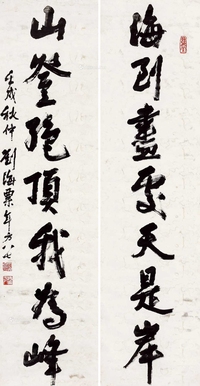 海到盡處天是岸
山登絕頂我為峰
壬戌秋仲劉海粟年方八七